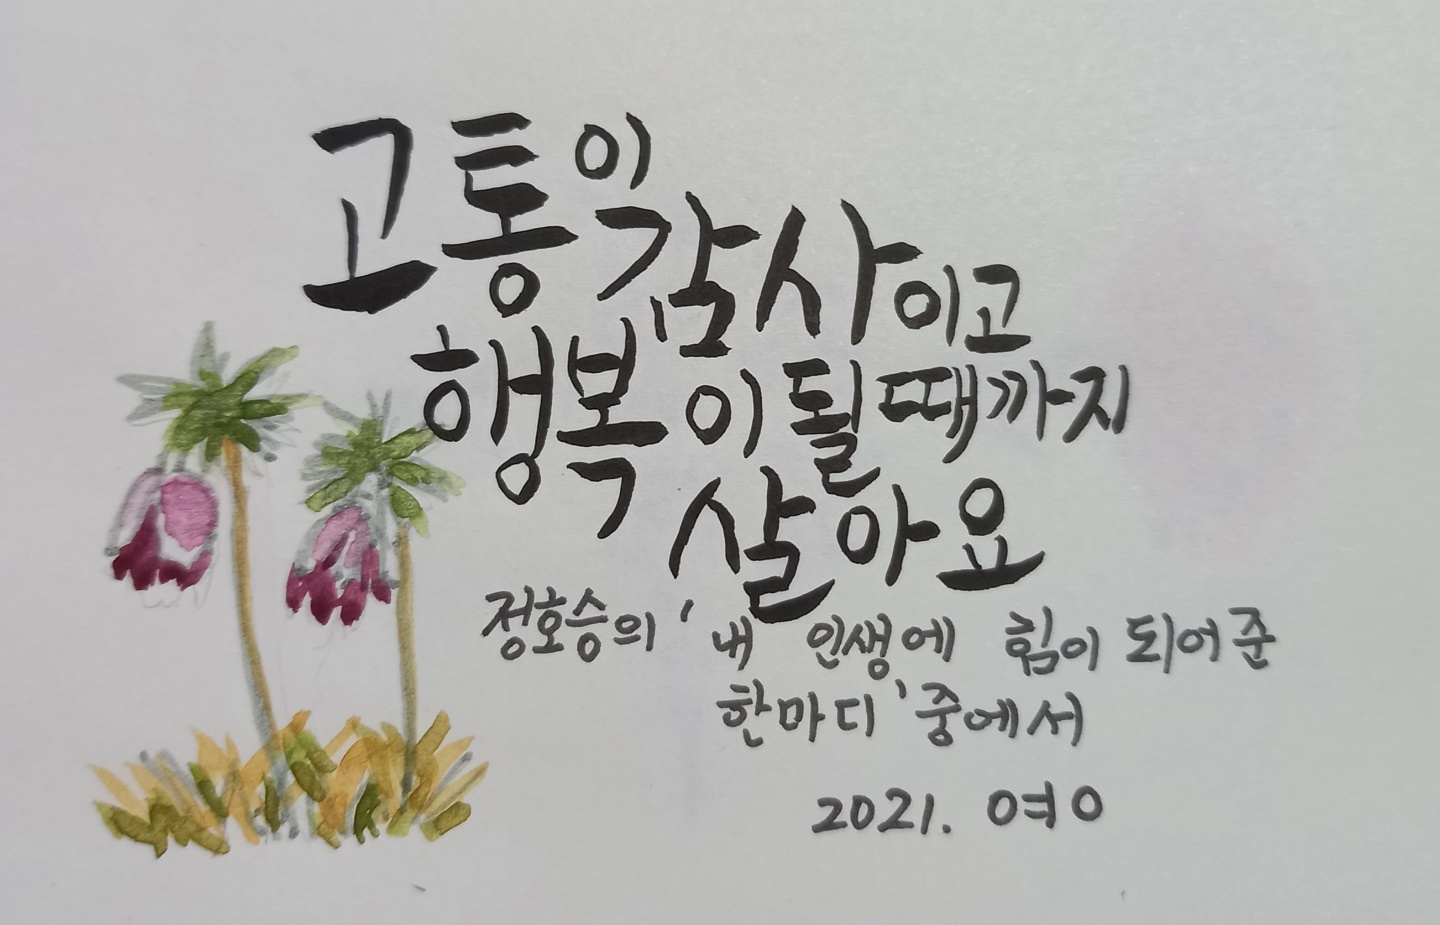 고통이
감사이고
행복이 될 때까지
살아요
정호승의 '내 인생에 힘이 되어 준
한마디' 중에서
2021. 여여